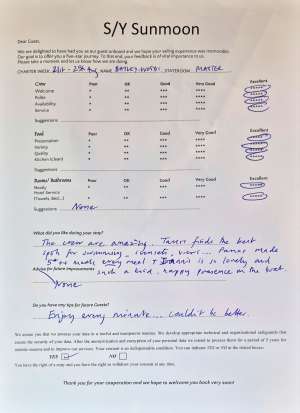 S/Y Sunmoon
Dear Guest,
We are delighted to have had you as our guest onboard and we hope your sailing experience was memorable.
Our goal is to offer you a five-star journey. To this end, your feedback is of vital importance to us.
Please take a moment and let us know how we are doing.
CHARTER WEEK 21st - 25th Aug NAME STATEROOM MASTER
Crew Poor OK Good Very Good Excellent
Welcome * ** *** **** *****
Polite * ** *** **** *****
Availability * ** *** **** *****
Service * ** *** **** *****
Suggestions:
Food Poor OK Good Very Good Excellent
Presentation * ** *** **** *****
Variety * ** *** **** *****
Quality * ** *** **** *****
Kitchen (clean) * ** *** **** *****
Suggestions:
Rooms/ Bathrooms Poor OK Good Very Good Excellent
Ready * ** *** **** *****
Hotel Service
(Towels, Bed...) * ** *** **** *****
Suggestions: None
What did you like during your stay?
The crew are amazing... finds the best
spots for swimming, sunsets, views... made
5* meals every meal & is so lovely and
such a kind, happy presence on the boat.
Advise for future improvements
None
Do you have any tips for future Guests?
Enjoy every minute... couldn't be better.
We assure you that we process your data in a lawful and transparent manner. We develop appropriate technical and organizational safeguards that
ensure the security of your data. After the anonymization and encryption of your personal data we intend to process them for a period of 5 years for
outside reasons and to improve our services. Your consent is an indispensable condition. You can indicate YES or NO in the related boxes:
YES NO
You have the right of a copy and you have the right to withdraw your consent at any time.
Thank you for your cooperation and we hope to welcome you back very soon!